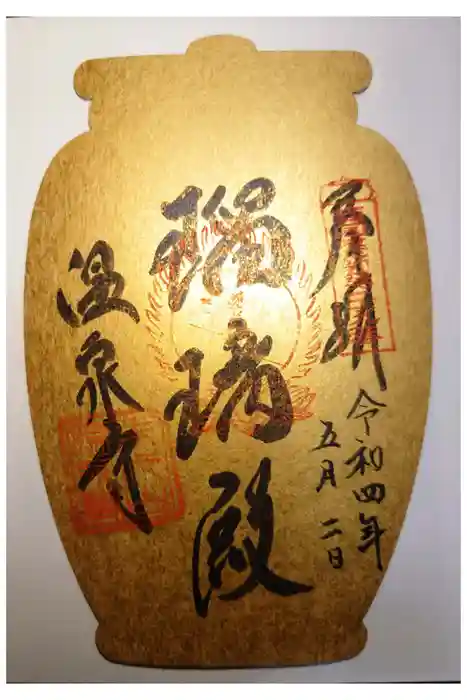 奉拝
令和四年
五月二日
瑠璃殿
温泉寺